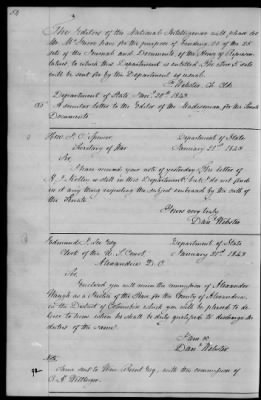 The Editors of the National Intelligencer will please let
Mr. have for the purpose of binding 20 of the 25
sets of the Journal and Documents, of the House of Represen-
tatives to which this Department is entitled. The other 5 sets
will be sent for by the Department as usual.
Webster, Ch. Clk.
Department of State Jan. 20th 1843
A similar letter to the Editor of the Madisonian for the Senate
Documents
Hon. J. C. Spencer Department of State
Secretary of War January 21st 1843
Sir,
I have received your note of yesterday. The letter of
is still in this Department, but I do not find
in it any thing respecting the subject embraced by the call of
the Senate.
Yours very truly,
Danl. Webster
Edmund I. Lee Esq Department of State
Clerk of the U.S. Court January 21st 1843
Alexandria D.C.
Sir,
Enclosed you will receive the commission of Alexander
Waugh as a Justice of the Peace for the County of Alexandria,
in the District of Columbia which you will be pleased to de-
liver to him when he shall be duly qualified to discharge the
duties of the same.
I am &c
Danl. Webster
Same sent to Wm. Brent Esq. with the commission of